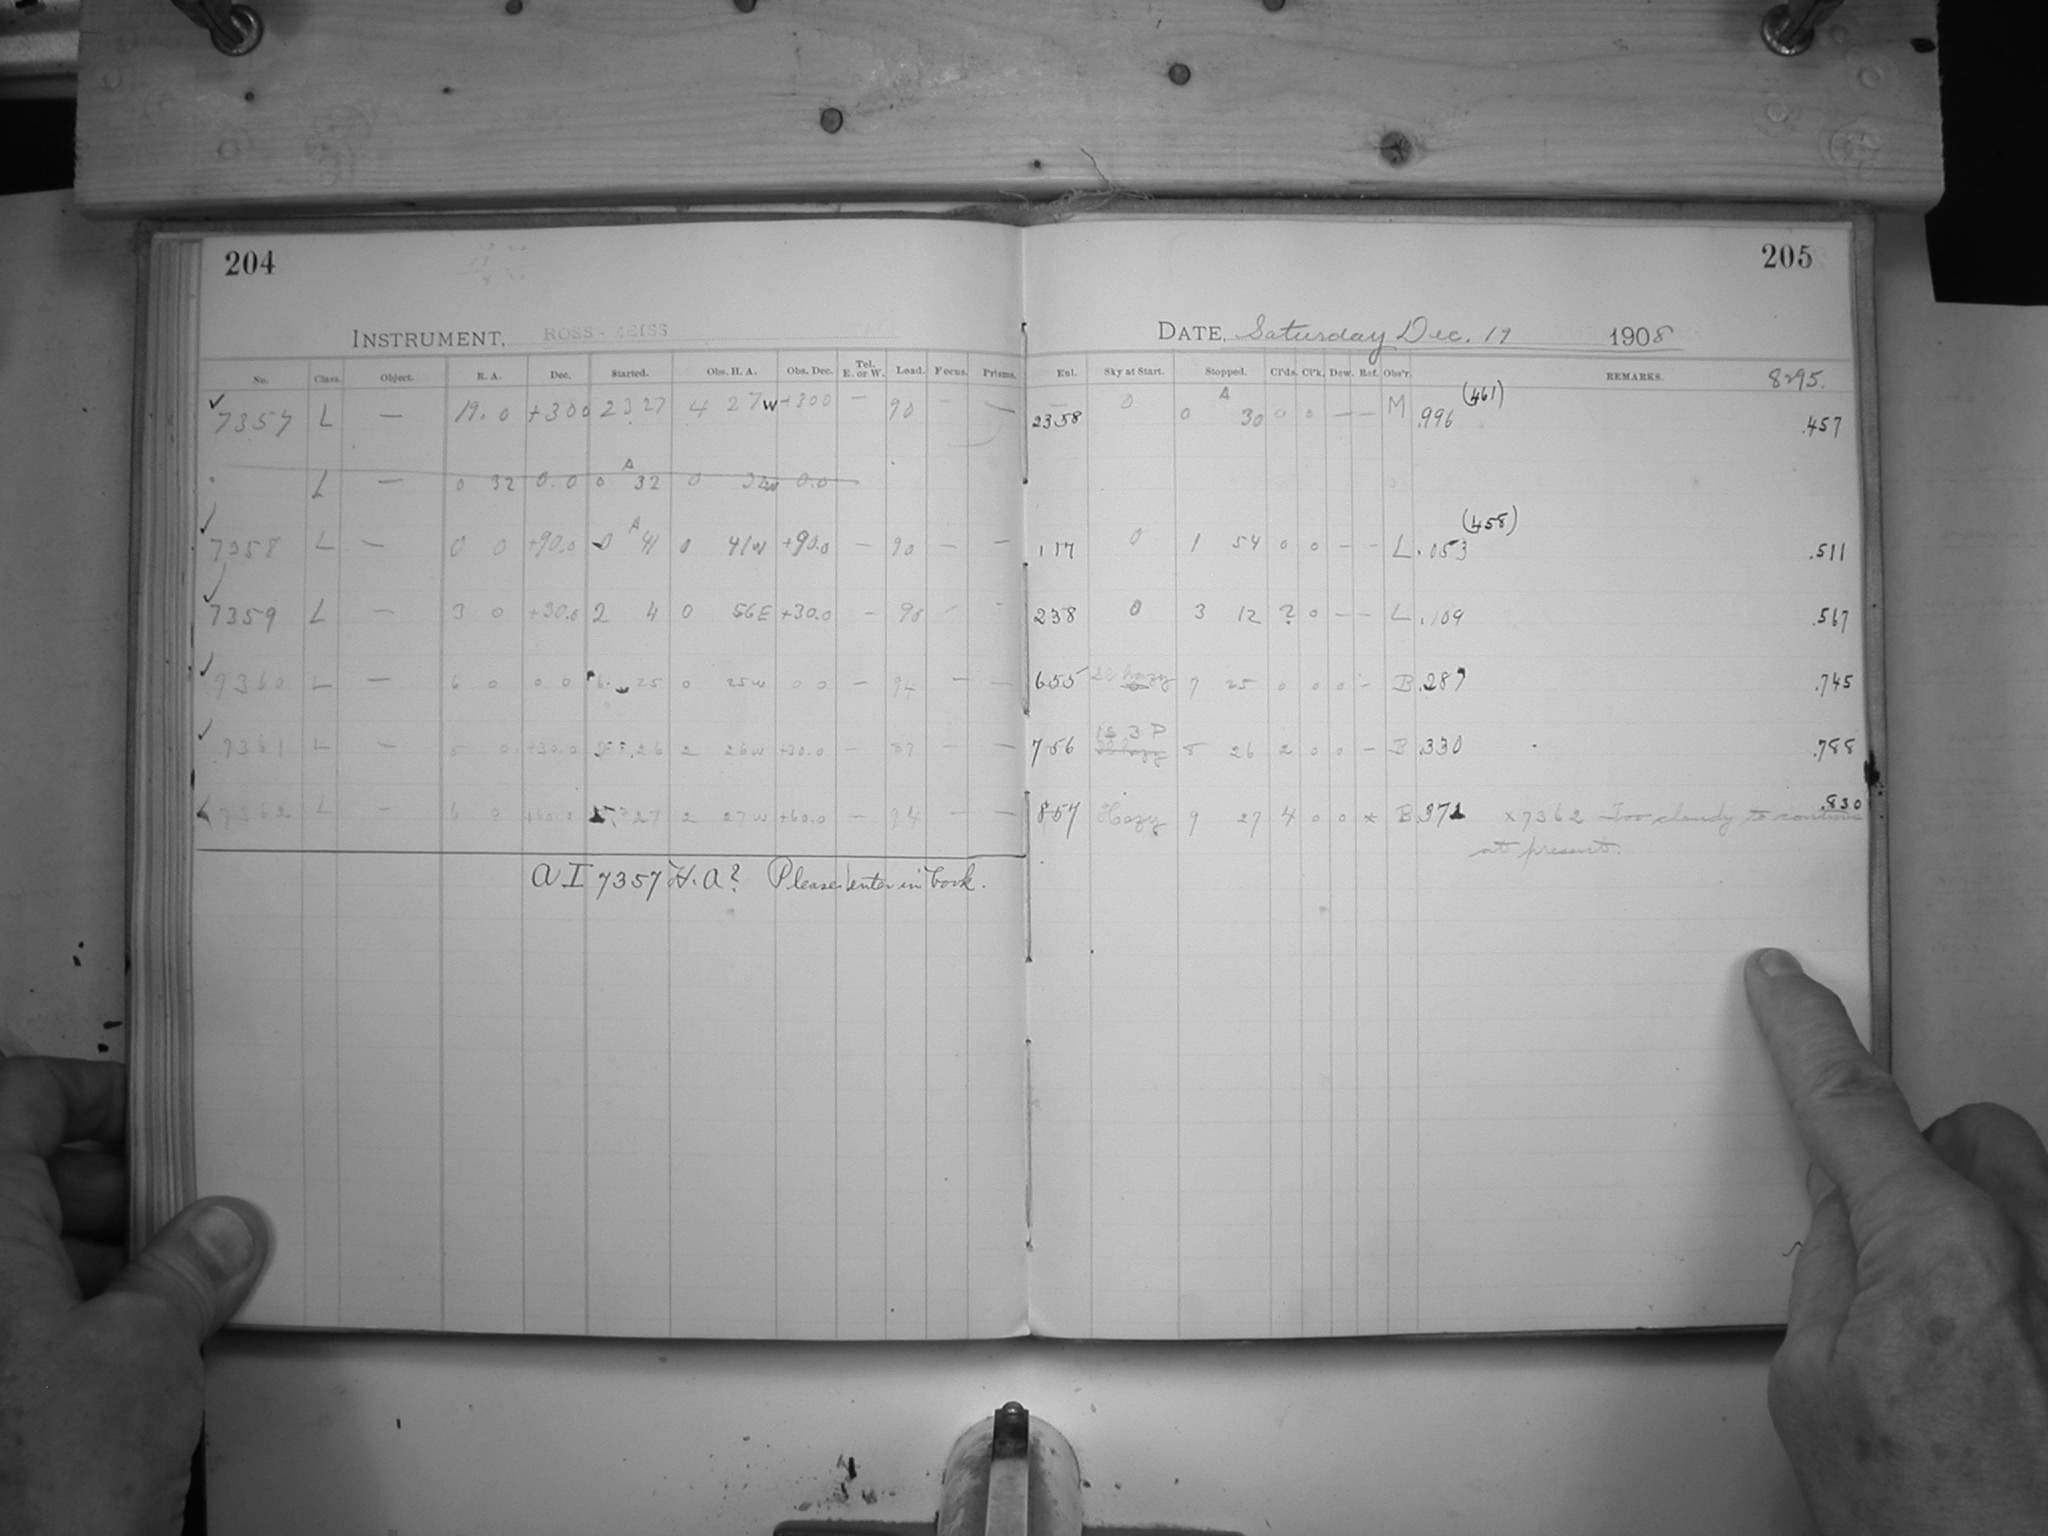 204
205
INSTRUMENT, ROSS-ZEISS
DATE, Saturday Dec. 19 1908
No. Class. Object. R. A. Dec. Started. Obs. H. A. Obs. Dec. Tel. E. or W. Load. Focus. Prisms. Enl. Sky at Start. Stopped. Cl'ds. Cl'k. Dew. Ref. Obs'r. REMARKS. 8295.
7357 L — 19. 0 +300 23 27 4 27w +300 — 90 — — 2358 0 0 A 30 0 0 — — M .996 (461) .457
L — 0 32 0.0 0 A 32 0 32w 0.0
7358 L — 0 0 +90.0 0 A 41 0 41w +90.0 — 90 — — 117 0 1 54 0 0 — — L .053 (458) .511
7359 L — 3 0 +30.0 2 4 0 56E +30.0 — 90 — — 238 0 3 12 ? 0 — — L .109 .567
7360 L — 6 0 0 0 6 25 0 25w 0 0 — 94 — — 655 Sl hazy 7 25 0 0 0 — B .287 .745
7361 L — 5 0 +30.0 26 2 26w +30.0 — 87 — — 756 1S 3 P Sl hazy 8 26 2 0 0 — B .330 .788
7362 L — 6 0 +60.0 27 2 27w +60.0 — 94 — — 857 Hazy 9 27 4 0 0 x B .372 x7362 Too cloudy to continue .830
at present.
A I 7357 H. A? Please enter in book.